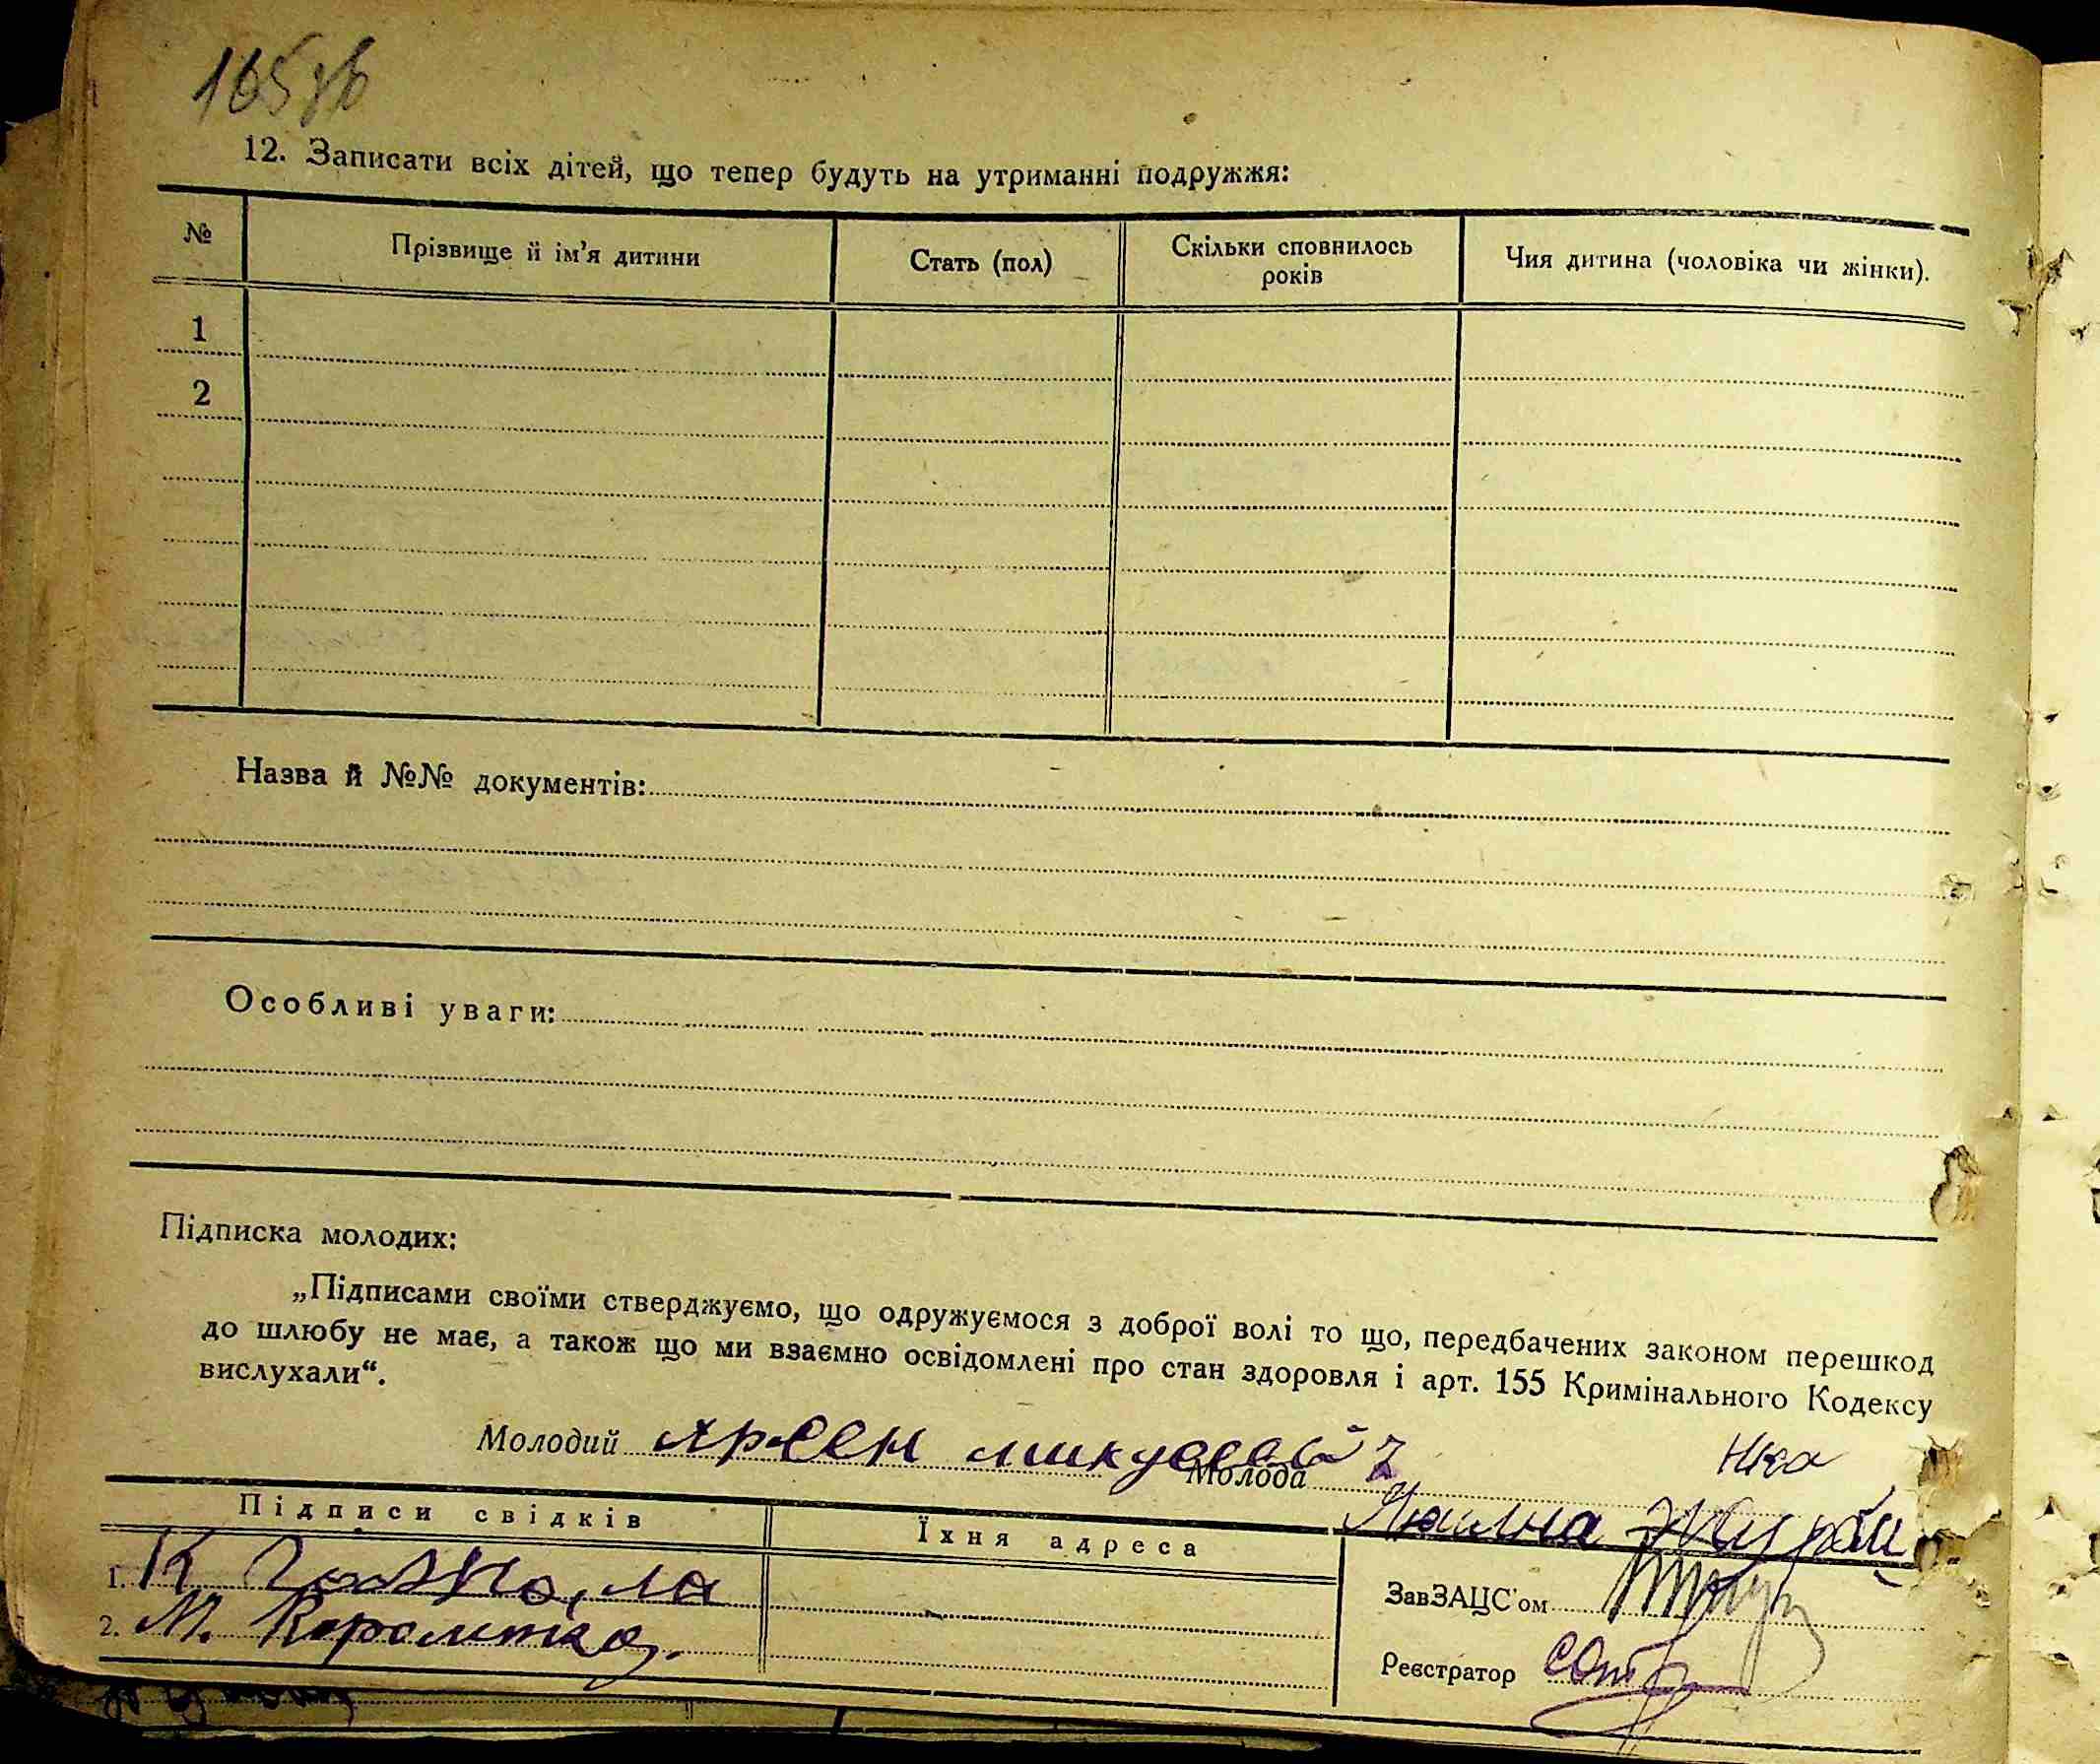 165 зв
12. Записати всіх дітей, що тепер будуть на утриманні подружжя:
№ Прізвище й ім’я дитини Стать (пол) Скільки сповнилось років Чия дитина (чоловіка чи жінки).
1
2
Назва й №№ документів:
Особливі уваги:
Підписка молодих:
„Підписами своїми стверджуємо, що одружуємося з доброї волі то що, передбачених законом перешкод
до шлюбу не має, а також що ми взаємно освідомлені про стан здоровля і арт. 155 Кримінального Кодексу
вислухали“.
Молодий Арсен
Молода
Підписи свідків Їхня адреса
1. К
2. М. Коротка
ЗавЗАЦС’ом
Реєстратор